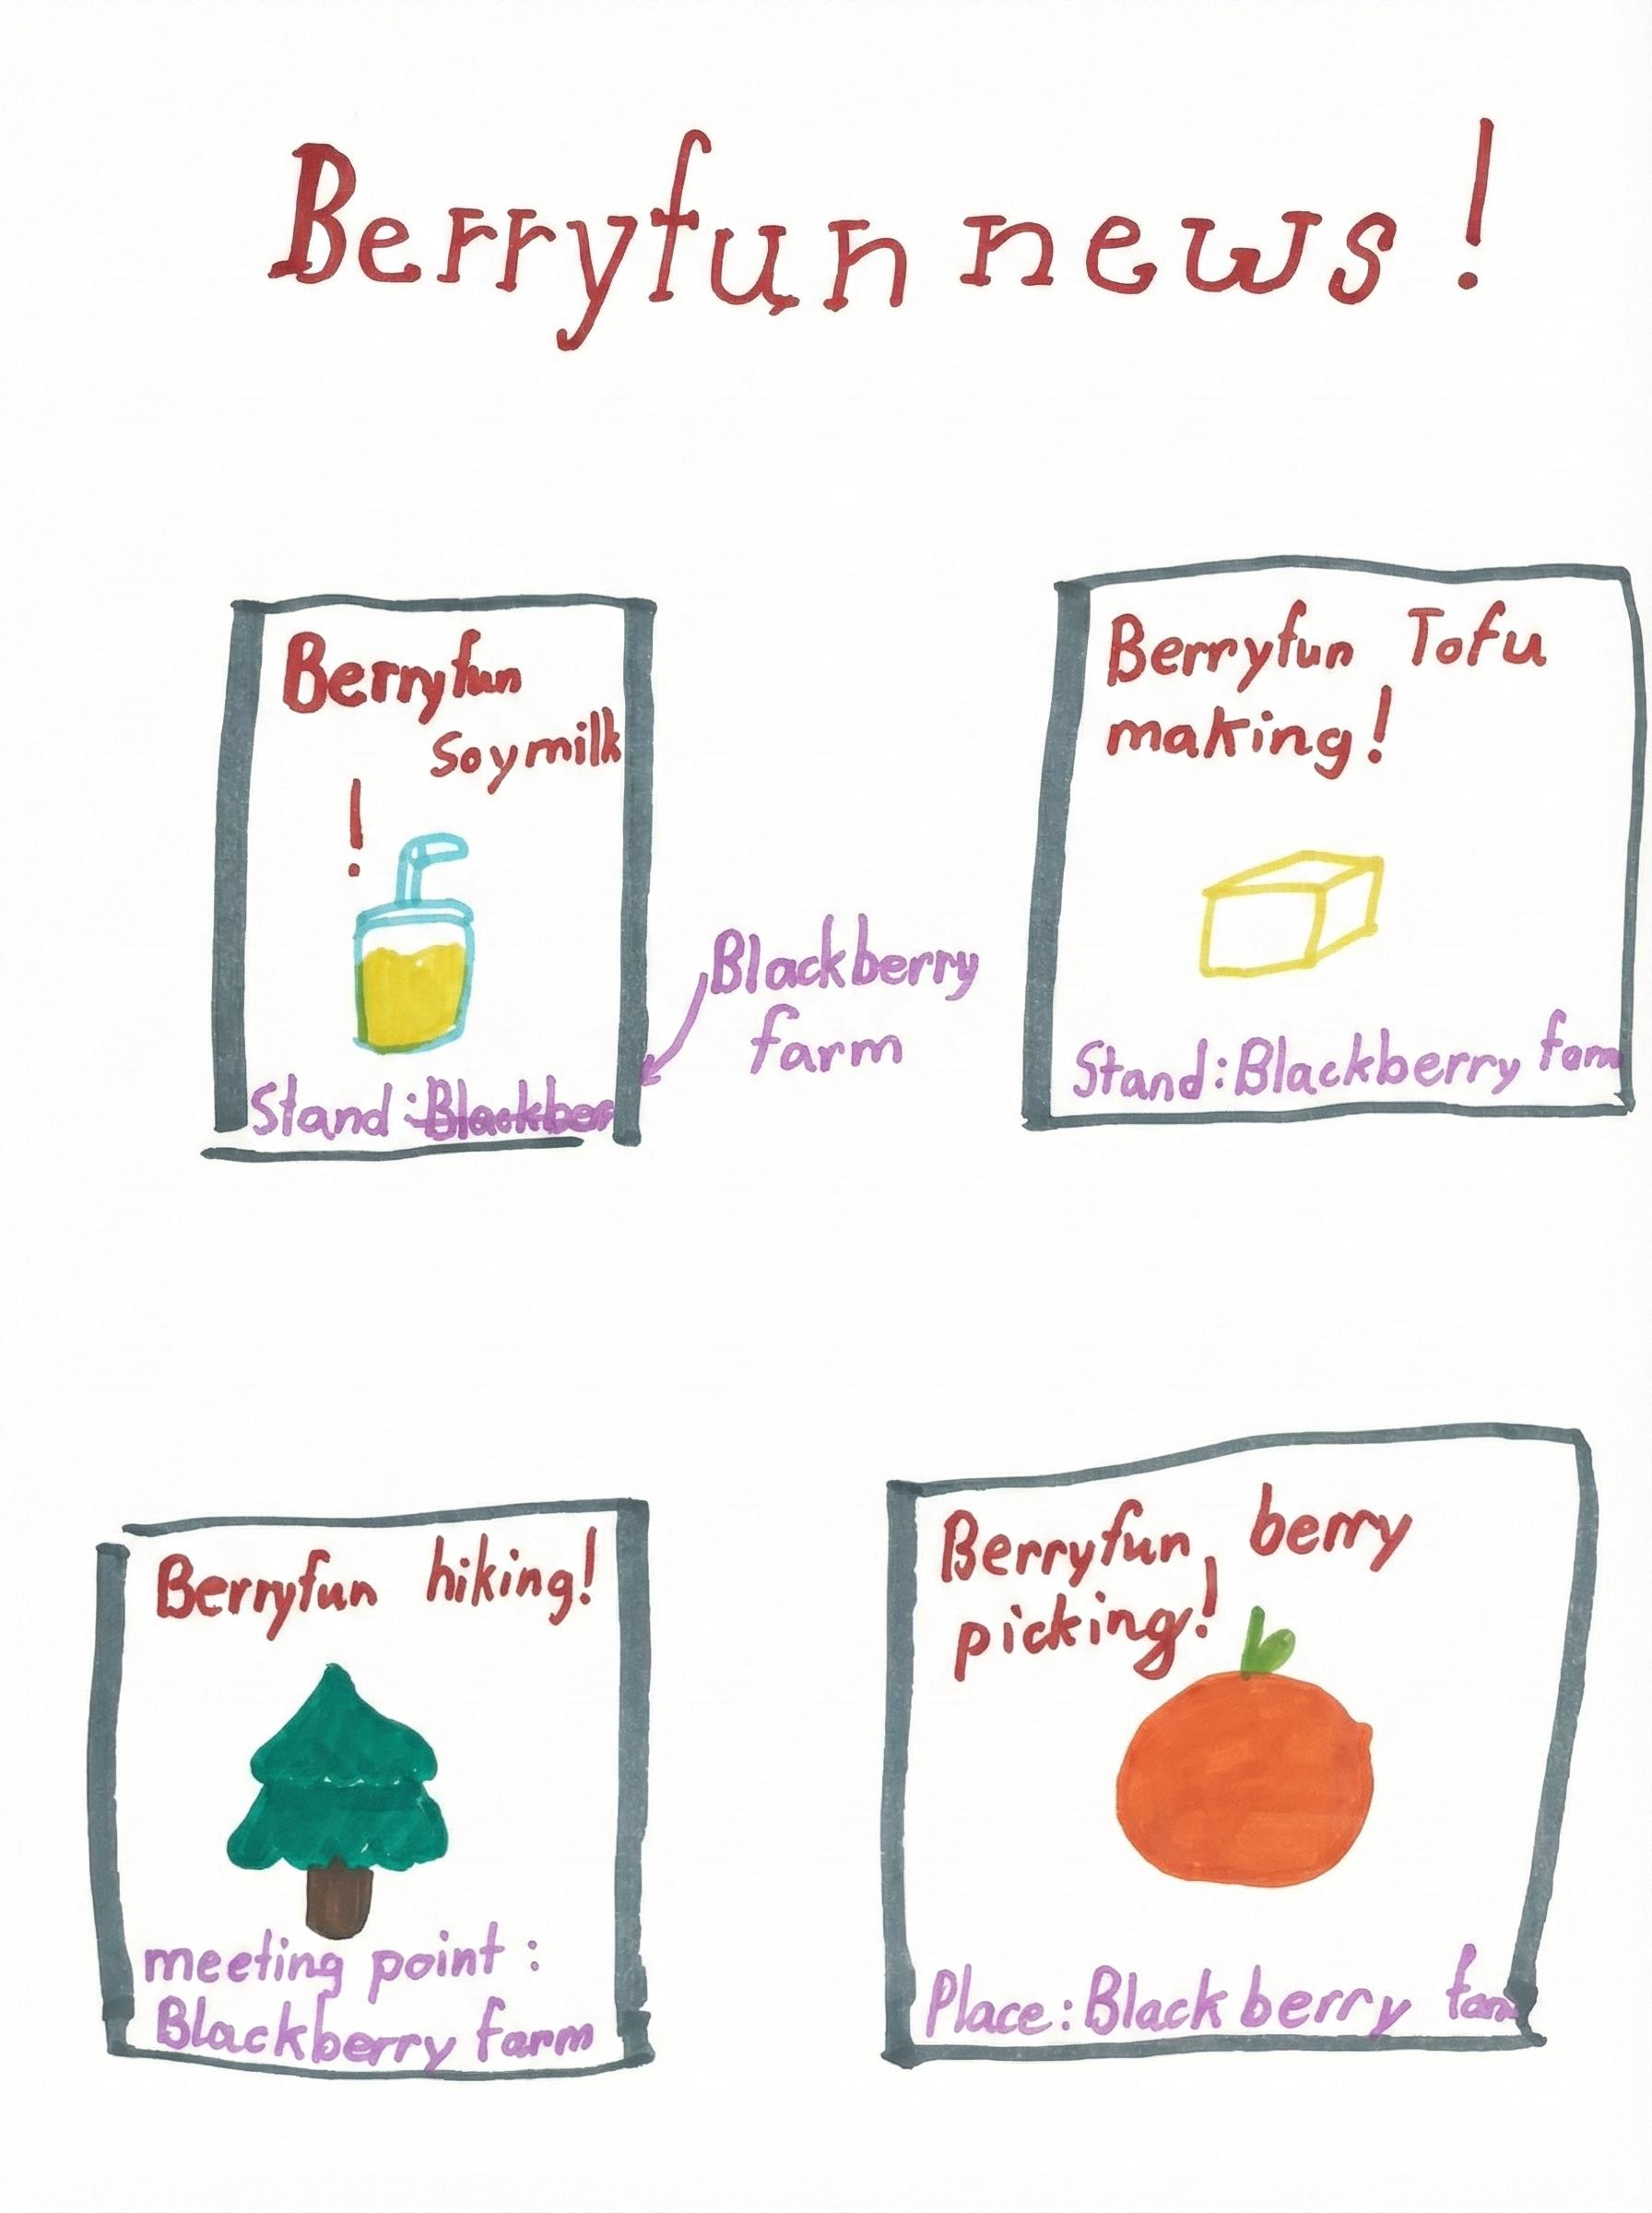 Berryfun news!
Berryfun
Soymilk
!
Stand:Blackber
Blackberry
farm
Berryfun Tofu
making!
Stand:Blackberry farm
Berryfun hiking!
meeting point:
Blackberry farm
Berryfun, berry
picking!
Place:Blackberry farm